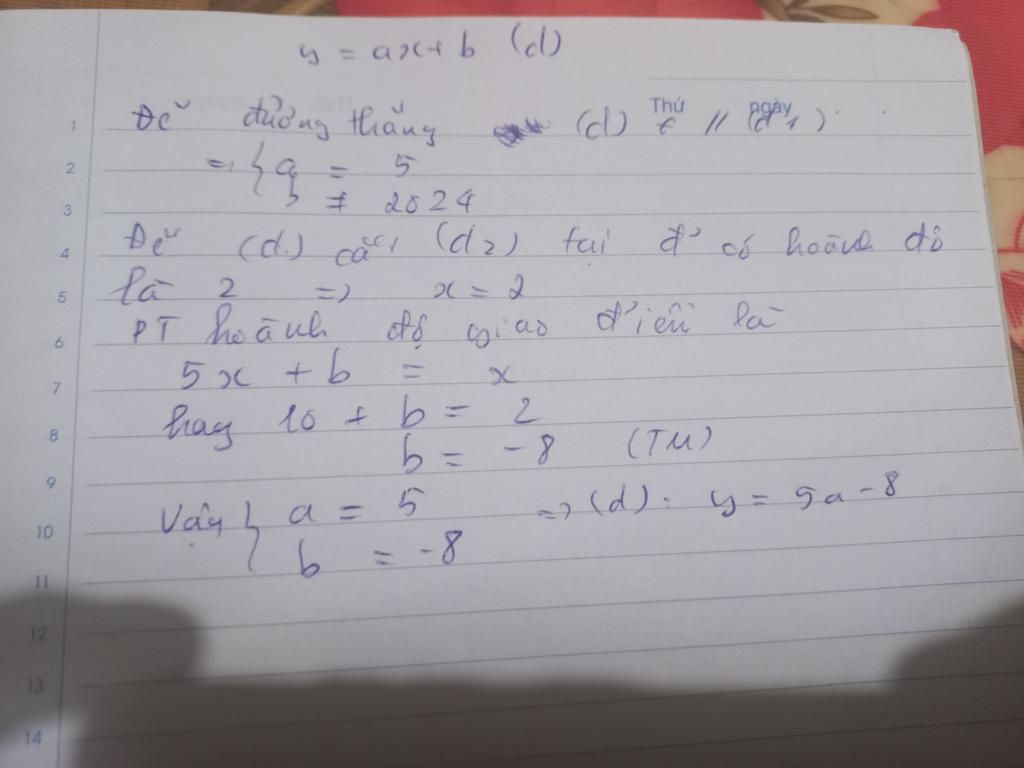 y = ax + b (d)
Thứ ngày
1 Để đường thẳng (d) // (d1)
2 => { a = 5
3 b ≠ 2024
4 Để (d) cắt (d2) tại đ' có hoành độ
5 là 2 => x = 2
6 PT hoành độ giao điểm là
7 5x + b = x
8 hay 10 + b = 2
9 b = -8 (TM)
10 Vậy { a = 5 => (d): y = 5a - 8
11 b = -8
12
13
14